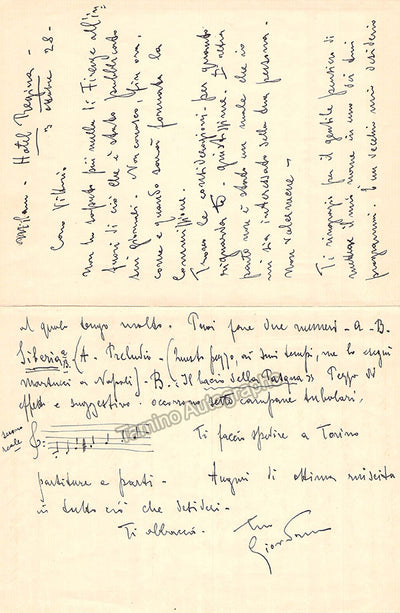 Milano - Hotel Regina -
3 ottobre 28 -
Caro Vittorio.
non ho saputo più nulla di Firenze all'in
fuori di ciò che è stato pubblicato
sui giornali. Non conosco, fin ora,
come e quando sarà formata la
Commissione.
Trovo le considerazioni, per quanto
riguarda te, giustissime. D'altra
parte non è stato un male che io
mi sia interessato della tua persona.
Non
Ti ringrazio per il gentile pensiero di
mettere il mio nome in uno dei tuoi
programmi. È un vecchio mio desiderio
al quale tengo molto. Puoi fare due numeri - A - B.
Siberia (A. Preludio - (questo pezzo, ai suoi tempi, me lo eseguì
Martucci a Napoli) - B. "Il bacio della Pasqua" Pezzo di
effetto e suggestivo. occorrono sette campane tubolari.
suono
reale
Ti faccio spedire a Torino
partiture e parti - Auguri di ottima riuscita
in tutto ciò che desideri -
Ti abbraccio. Tuo
Giordano
Tamino Autographs